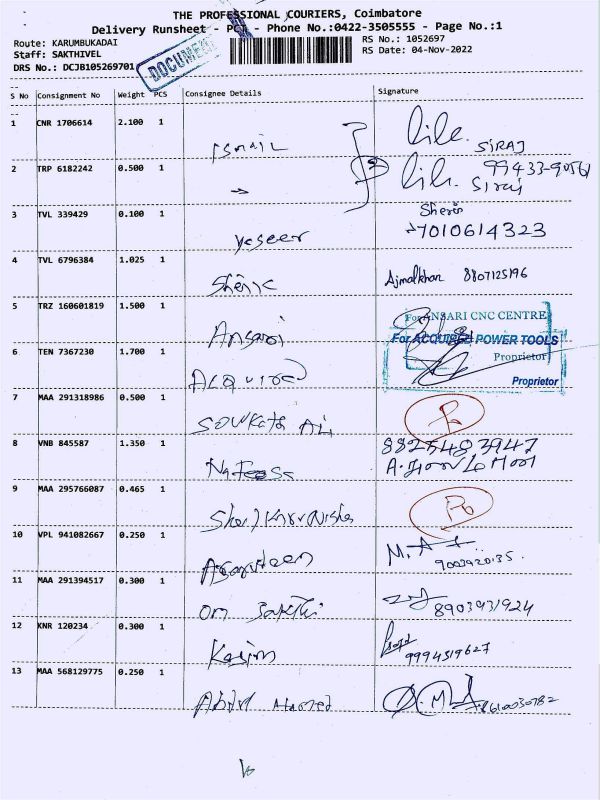 THE PROFESSIONAL COURIERS, Coimbatore
Delivery Runsheet - PCT - Phone No.:0422-3505555 - Page No.:1
Route: KARUMBUKADAI
RS No.: 1052697
Staff: SAKTHIVEL
RS Date: 04-Nov-2022
DRS No.: DCJB105269701
DOCUMENT
S No Consignment No Weight PCS Consignee Details Signature
1 CNR 1706614 2.100 1 Ismail SIRAJ
2 TRP 6182242 0.500 1 99433-90561 Siraj
3 TVL 339429 0.100 1 yaseer Sherin 7010614323
4 TVL 6796384 1.025 1 Ajmalkhan 8807125196
5 TRZ 160601819 1.500 1 Ansari For ANSARI CNC CENTRE
Proprietor
6 TEN 7367230 1.700 1 Acquired For ACQUIRED POWER TOOLS
Proprietor
7 MAA 291318986 0.500 1 Sowkath Ali
8 VNB 845587 1.350 1 8825483947
9 MAA 295766087 0.465 1
10 VPL 941082667 0.250 1 9003920135
11 MAA 291394517 0.300 1 Om Sakthi 8903931924
12 KNR 120234 0.300 1 Kasim 9994519627
13 MAA 568129775 0.250 1 Abdul Hameed 8610030782